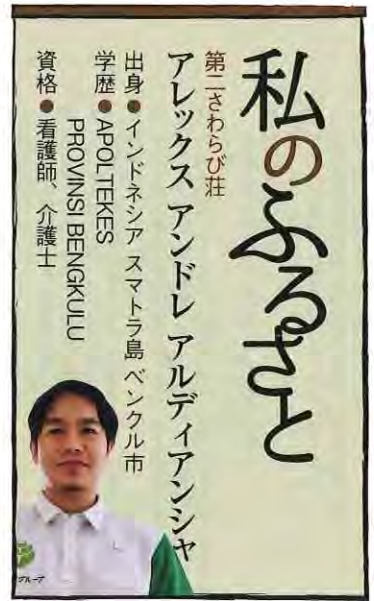 私のふるさと
第二さわらび荘
アレックス アンドレ アルディアンシャ
出身●インドネシア スマトラ島 ベンクル市
学歴●APOLTEKES
PROVINSI BENGKULU
資格●看護師、介護士
グループ